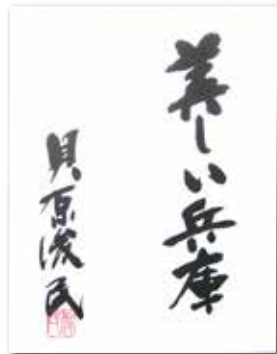 美しい兵庫
貝原俊民